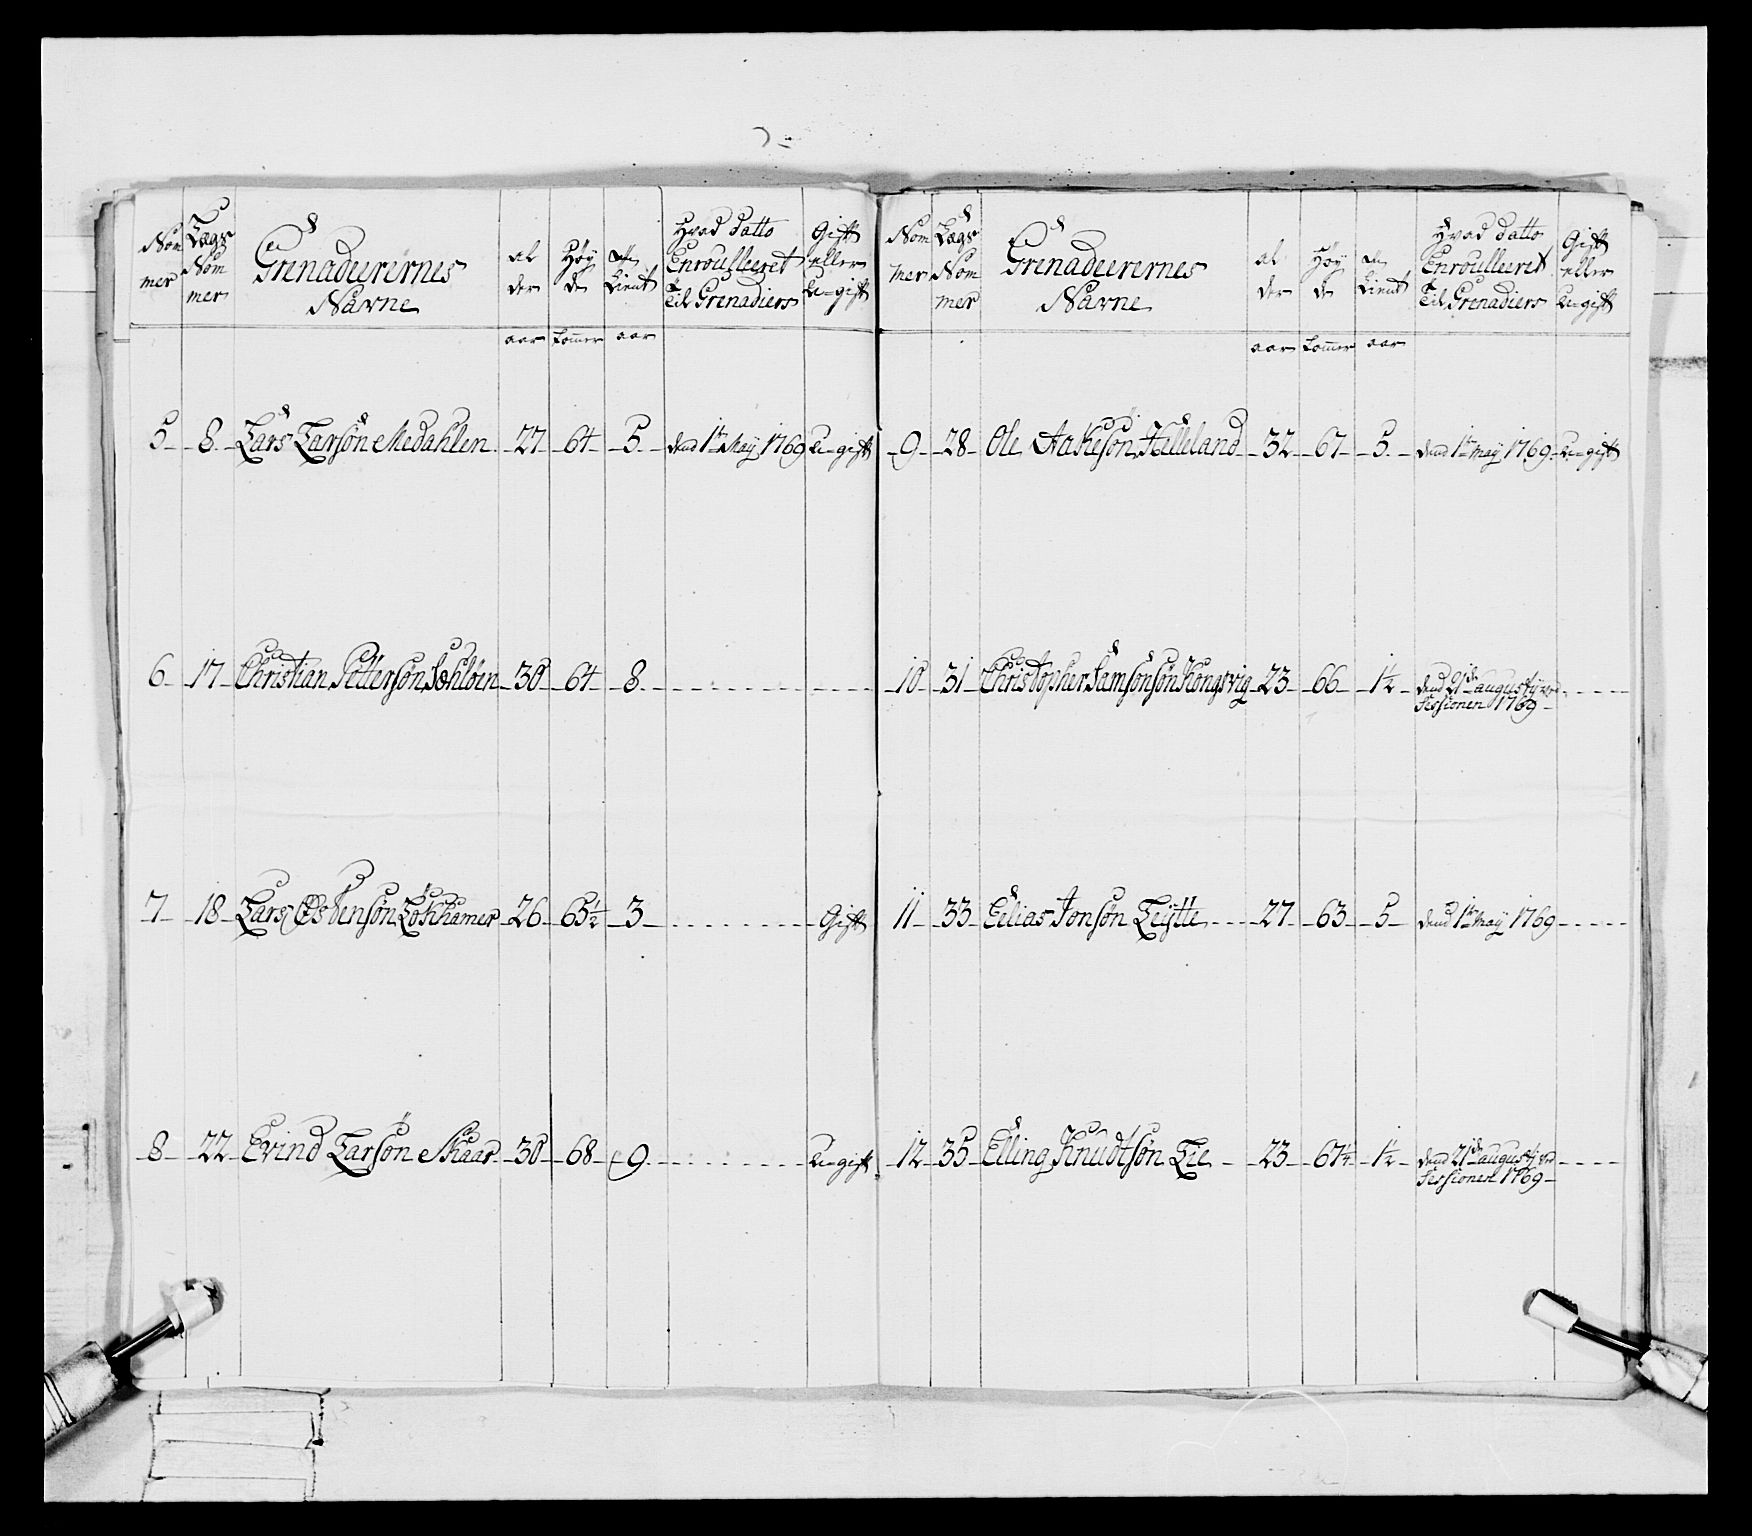 Nom
mer
Lægs
Nom
mer
Grenadeerernes
Navne
al
der
Høy
de
Tient
Hvad datto
Enroulleeret
Til Grenadiers
Gift
eller
U=gift
aar Tommer aar
5 8 Lars Larsøn Medahlen 27 64 5 dend 1te May 1769 U=gift
6 17 Christian Pettersøn 30 64 8
7 18 Lars Østensøn 26 65½ 3 Gift
8 22 Evind Larsøn Skaar 30 68 9 U=gift
Nom
mer
Lægs
Nom
mer
Grenadeerernes
Navne
al
der
Høy
de
Tient
Hvad datto
Enroulleeret
Til Grenadiers
Gift
eller
U=gift
aar Tommer aar
9 28 Ole Aakesøn Helleland 32 67 5 dend 1te May 1769 U=gift
10 31 Christopher Samsønsøn Kongsvig 23 66 1½ dend 21de augusty ved
Sessionen 1769
11 33 Eelias Jonsøn Teÿtte 27 63 5 dend 1te May 1769
12 35 Elling Knudtsøn Lie 23 67¼ 1½ dend 21de augusty ved
Sessionen 1769